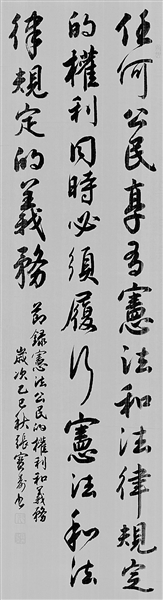 任何公民享有憲法和法律規定
的權利同時必須履行憲法和法
律規定的義務
前錄憲法公民的權利和義務
歲次乙巳秋張寶